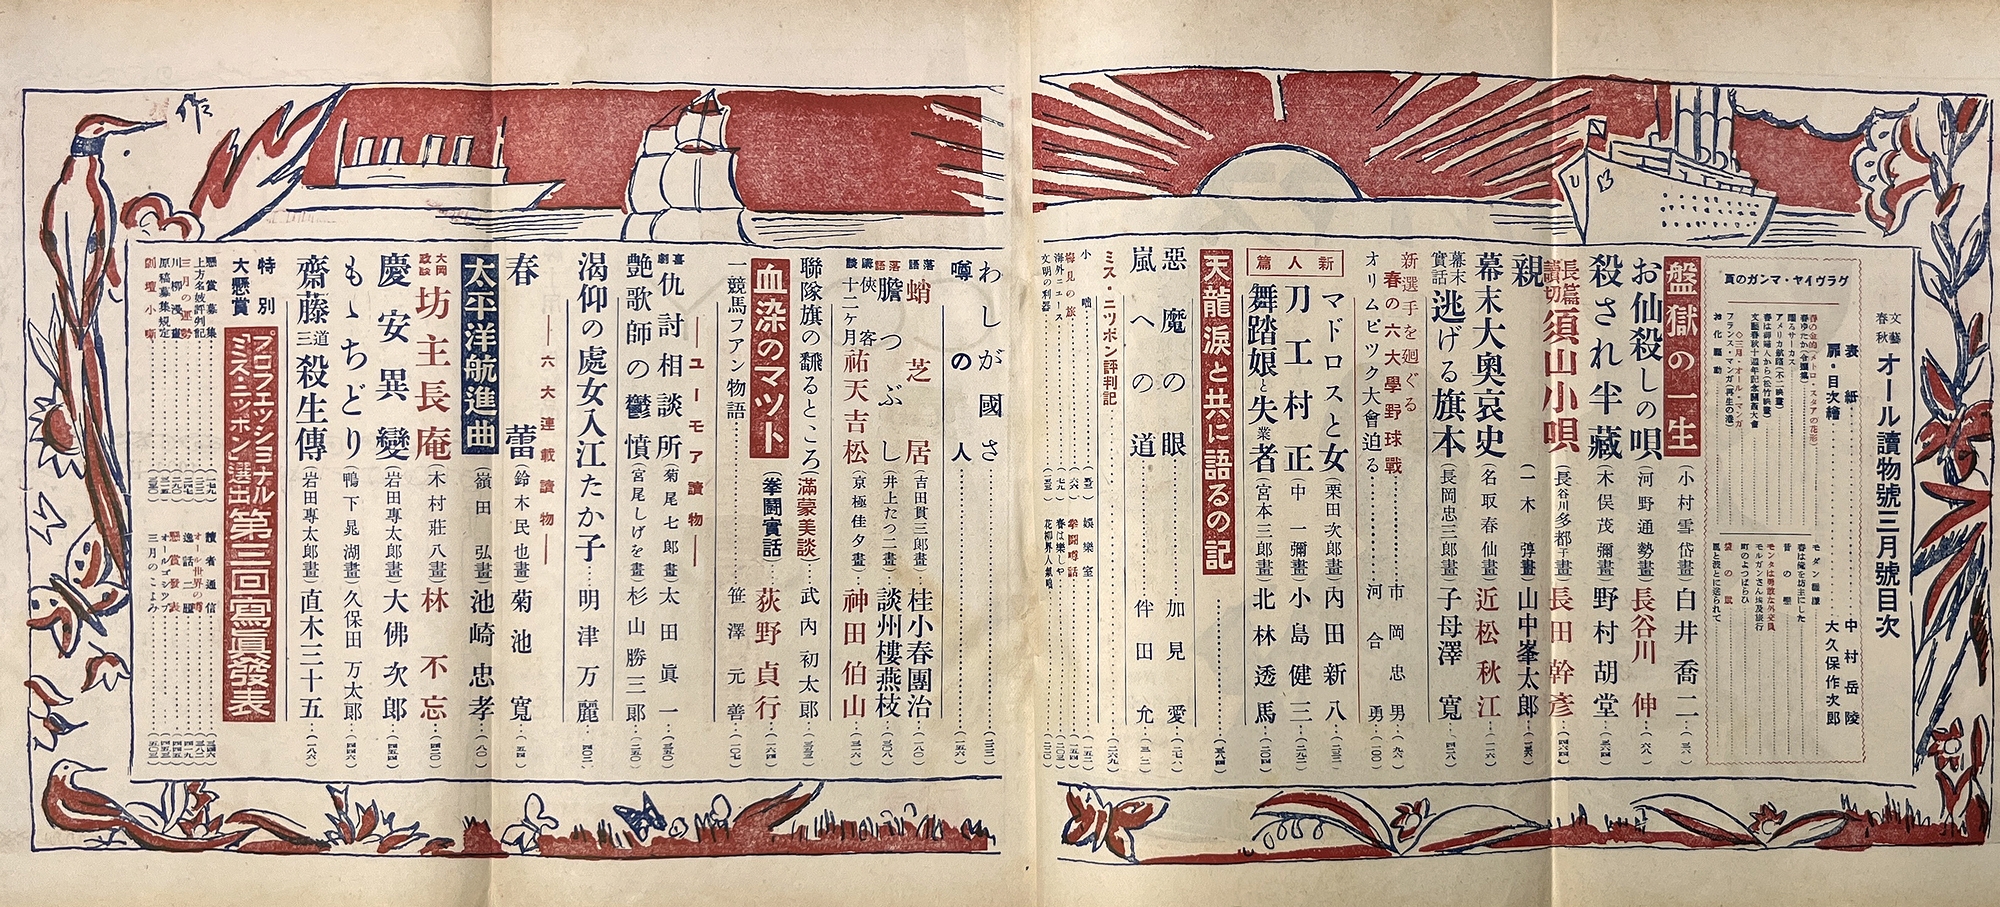 文藝春秋 オール讀物號三月號目次
表紙 中村岳陵
扉・目次繪 大久保作次郎
グラヴィヤ・マンガの頁
モダン
昔の
町のよつぱらひ
風と波とに送られて
盤獄の一生 (小村雪岱畫) 白井喬二
お仙殺しの唄 (河野通勢畫) 長谷川伸
殺され半藏 (木俣茂彌畫) 野村胡堂
長篇讀切 須山小唄 (長谷川多都子畫) 長田幹彦
親 (一木弴畫) 山中峯太郎
幕末大奥哀史 (名取春仙畫) 近松秋江
幕末實話 逃げる旗本 (長岡忠三郎畫) 子母澤寛
新選手を廻ぐる 春の六大學野球戰 市岡忠男
オリムピツク大會迫る 河合勇
新人篇
マドロスと女 (栗田次郎畫) 内田新八
刀工村正 (中一彌畫) 小島健三
舞踏娘と失業者 (宮本三郎畫) 北林透馬
天龍涙と共に語るの記
惡魔の眼 加見愛
嵐への道 伴田允
ミス・ニツポン評判記
小咄
海外ニュース
文明の利器
娯樂室
拳鬪噂話
春は樂しや
わしが國さ
噂の人
落語 蛸芝居 (吉田貫三郎畫) 桂小春團治
落語 臍つぶし (井上たつ二畫) 談州樓燕枝
講談 侠客十二ケ月 祐天吉松 (京極佳夕畫) 神田伯山
聯隊旗の飜るところ (滿蒙美談) 武内初太郎
血染のマツト (拳鬪實話) 荻野貞行
競馬フアン物語 笹澤元善
―ユーモア讀物―
喜劇 仇討相談所 (菊尾七郎畫) 太田眞一
艶歌師の鬱憤 (宮尾しげを畫) 杉山勝三郎
渇仰の處女入江たか子 明津万麗
―六大連載讀物―
春蕾 (鈴木民也畫) 菊池寛
太平洋航進曲 (嶺田弘畫) 池崎忠孝
大岡政談 坊主長庵 (木村莊八畫) 林不忘
慶安異變 (岩田專太郎畫) 大佛次郎
もゝちどり (鴨下晁湖畫) 久保田万太郎
齋藤道三殺生傳 (岩田專太郎畫) 直木三十五
特別大懸賞 プロフェッショナル ミス・ニッポン選出 第三回寫眞發表
懸賞募集
上方名妓評判記
三月の運勢
川柳漫畫
原稿募集規定
劇壇小噺
讀者通信
オール世界の噂
逸話二題
懸賞發表
オールゴシツプ
三月のこよみ